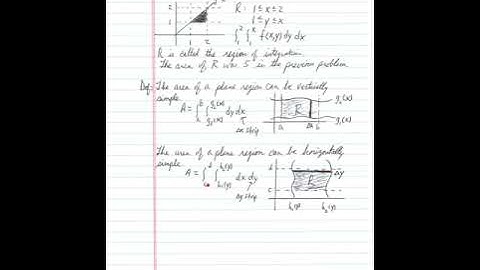 2
1
1 2
R: 1 ≤ x ≤ 2
1 ≤ y ≤ x
∫₁² ∫₁ˣ f(x,y) dy dx
R is called the region of integration.
The area of R was 5 in the previous problem.
Def: The area of a plane region can be vertically
simple.
A = ∫ₐᵇ ∫_{g₁(x)}^{g₂(x)} dy dx
Δx strip
g₂(x)
R
g₁(x)
a Δx b
The area of a plane region can be horizontally
simple.
A = ∫_c^d ∫_{h₁(y)}^{h₂(y)} dx dy
Δy strip
d
Δy
R
c
h₁(y) h₂(y)